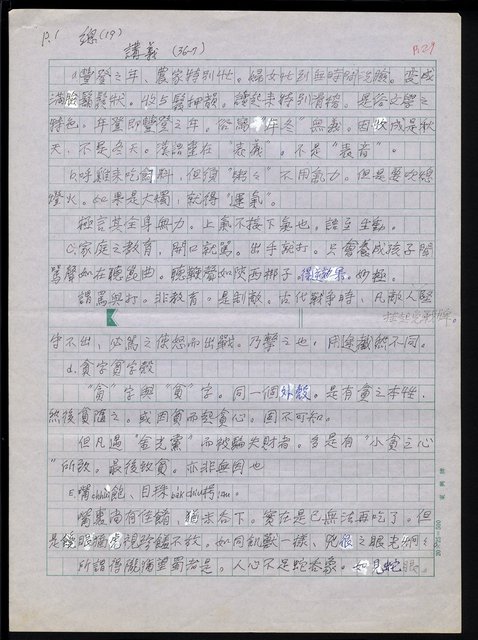 P.1 總(19)
講義(36-7) P.29
a.豐登之年、農家特別忙。婦女忙到無時間洗臉。變成
滿臉鬍鬚狀。收與鬚押韻。讀起來特別滑稽。是俗文學之
特色。年登即豐登之年。俗寫"年冬"無義。因收成是秋
天、不是冬天。漢語重在"表義"。不是"表音"。
b.呼雞來吃飼料,但價" "不用氣力。但是要吹熄
燈火。如果是大燭,就得"運氣"。
極言其全身無力。上氣不接下氣也。語至生動。
C.家庭之教育,開口就罵。出手就打。只會養成孩子聞
罵聲如在聽崑曲。聽鞭聲如陝西梆子。 妙極。
謂罵與打。非教育。是制敵。古代戰爭時、凡敵人堅
掛起免戰牌。
守不出,必罵之使怒而出戰。乃擊之也,用途截然不同。
d.貪字貧字殼
"貪"字與"貧"字。同一個外殼。是有貪之本性,
然後貧隨之。或因貧而起貪心。固不可知。
但凡遇"金光黨"而被騙失財者。多是有"小貪之心
"所致。最後致貧。亦非無因也
E.嘴 飽、目珠bak chiu
嘴裏尚有佳餚,猶未吞下。實在是已無法再吃了。但
是饞眼猶虎視眈眈不放。如同飢獸一樣、 之眼光炯之
所謂得隴猶望蜀者是。人心不足蛇吞象。如見蛇眼。